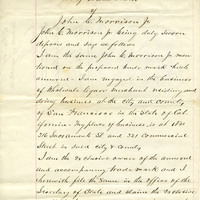 of
John C. Morrison Jr
John C. Morrison Jr being duly sworn
deposes and says as follows
I am the same John C. Morrison Jr men
tioned in the proposed trade mark hereto
annexed. I am engaged in the business
of Wholesale Cigar merchant residing and
doing business at the City and County
of San Francisco in the State of Cal
ifornia my place of business is at No
216 Sacramento St and 321 Commercial
Street in said city & County
I am the exclusive owner of the annexed
and accompanying trade mark and I
herewith file the same in the office of the
Secretary of State and claim the exclusive